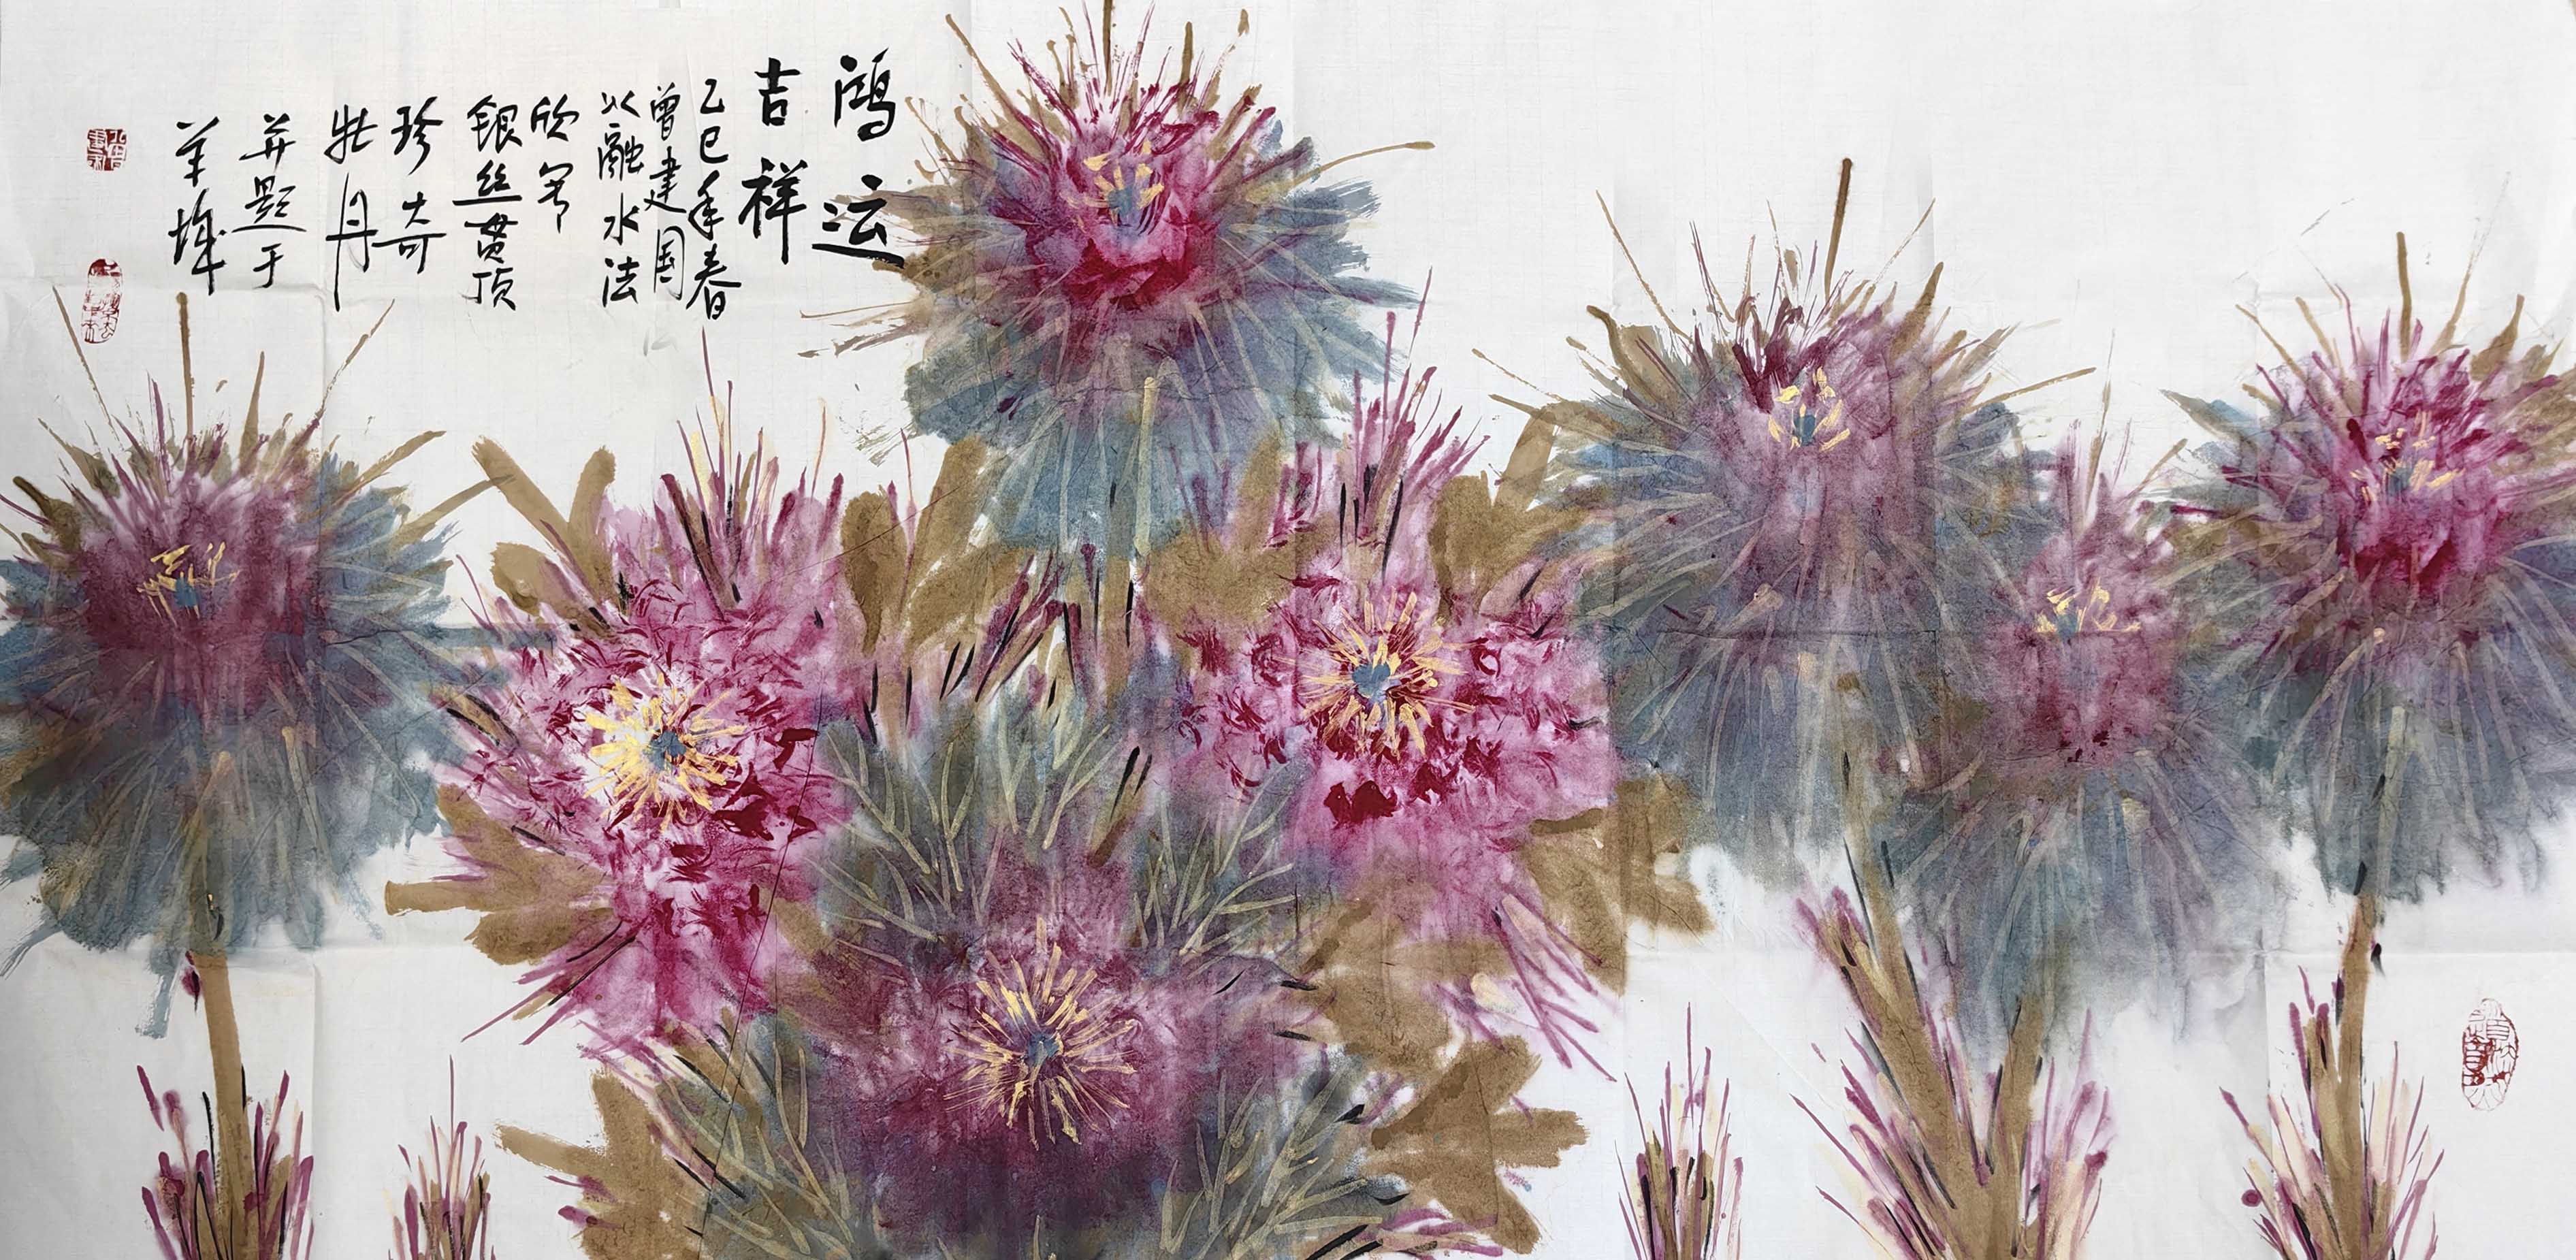 鸿运
吉祥
乙巳年春
曾建国
以融水法
欣写
银丝贯顶
珍奇
牡丹
并题于
羊城